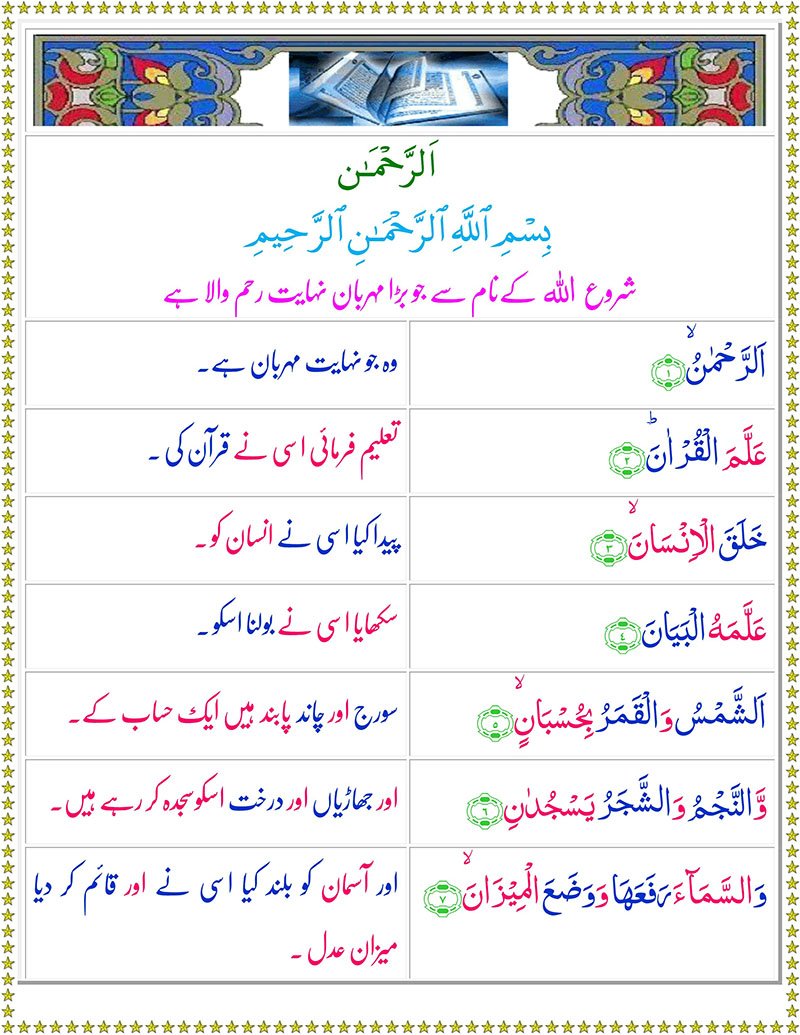 اَلرَّحْمٰن
بِسْمِ ٱللَّهِ ٱلرَّحْمَـٰنِ ٱلرَّحِيمِ
شروع اللہ کے نام سے جو بڑا مہربان نہایت رحم والا ہے
اَلرَّحْمٰنُۙ ۝۱
وہ جو نہایت مہربان ہے۔
عَلَّمَ الْقُرْاٰنَؕ ۝۲
تعلیم فرمائی اسی نے قرآن کی ۔
خَلَقَ الْاِنْسَانَۙ ۝۳
پیدا کیا اسی نے انسان کو۔
عَلَّمَهُ الْبَيَانَ ۝۴
سکھایا اسی نے بولنا اسکو۔
اَلشَّمْسُ وَالْقَمَرُ بِحُسْبَانٍۙ ۝۵
سورج اور چاند پابند ہیں ایک حساب کے۔
وَّالنَّجْمُ وَالشَّجَرُ يَسْجُدٰنِ ۝۶
اور جھاڑیاں اور درخت اسکو سجدہ کر رہے ہیں۔
وَالسَّمَآءَ رَفَعَهَا وَوَضَعَ الْمِيْزَانَۙ ۝۷
اور آسمان کو بلند کیا اسی نے اور قائم کر دیا
میزان عدل ۔